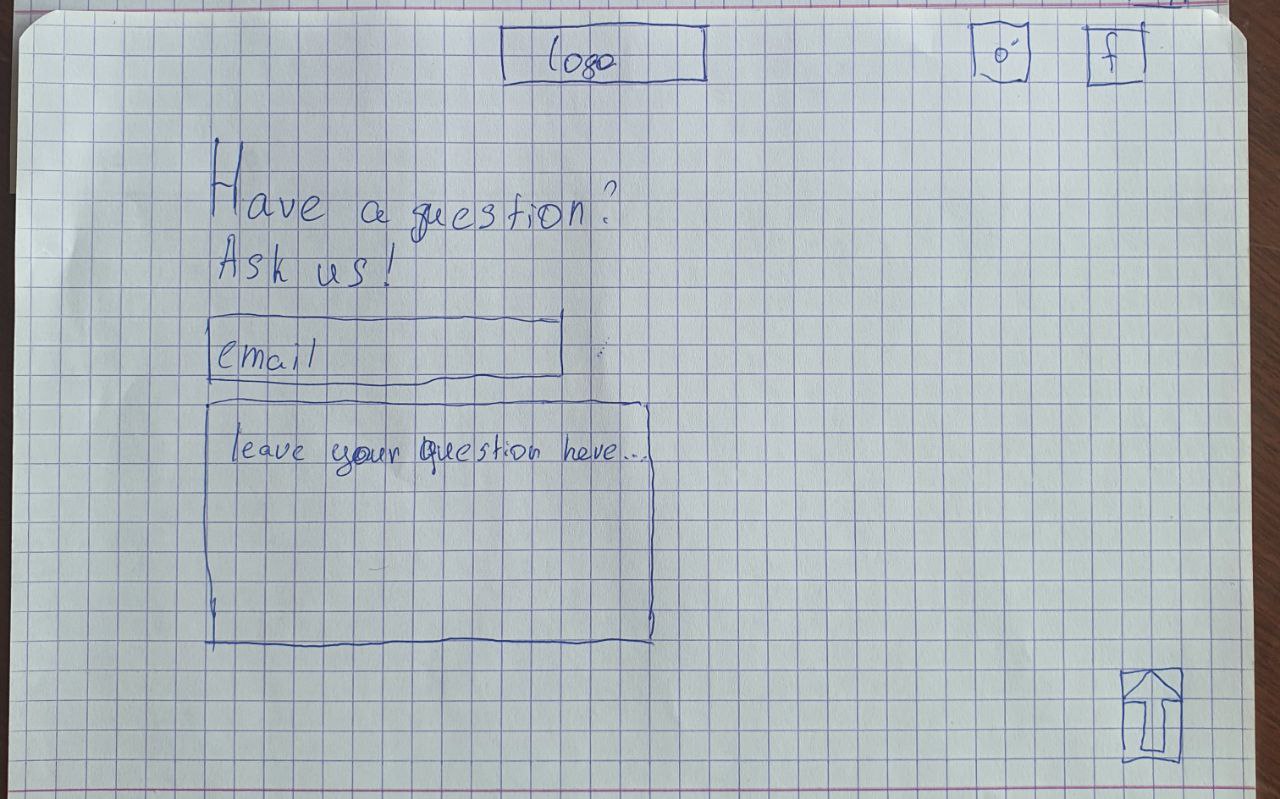 logo
f
Have a question?
Ask us!
email
leave your question here...